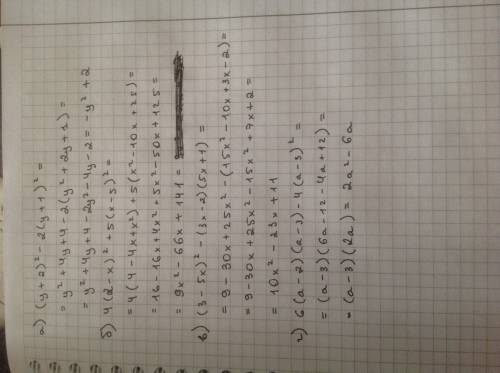 а) (y+2)² - 2(y+1)² =
= y² + 4y + 4 - 2(y² + 2y + 1) =
= y² + 4y + 4 - 2y² - 4y - 2 = -y² + 2
б) 4(2-x)² + 5(x-5)² =
= 4(4 - 4x + x²) + 5(x² - 10x + 25) =
= 16 - 16x + 4x² + 5x² - 50x + 125 =
= 9x² - 66x + 141 =
в) (3 - 5x)² - (3x-2)(5x+1) =
= 9 - 30x + 25x² - (15x² - 10x + 3x - 2) =
= 9 - 30x + 25x² - 15x² + 7x + 2 =
= 10x² - 23x + 11
г) 6(a-2)(a-3) - 4(a-3)² =
= (a-3)(6a - 12 - 4a + 12) =
= (a-3)(2a) = 2a² - 6a